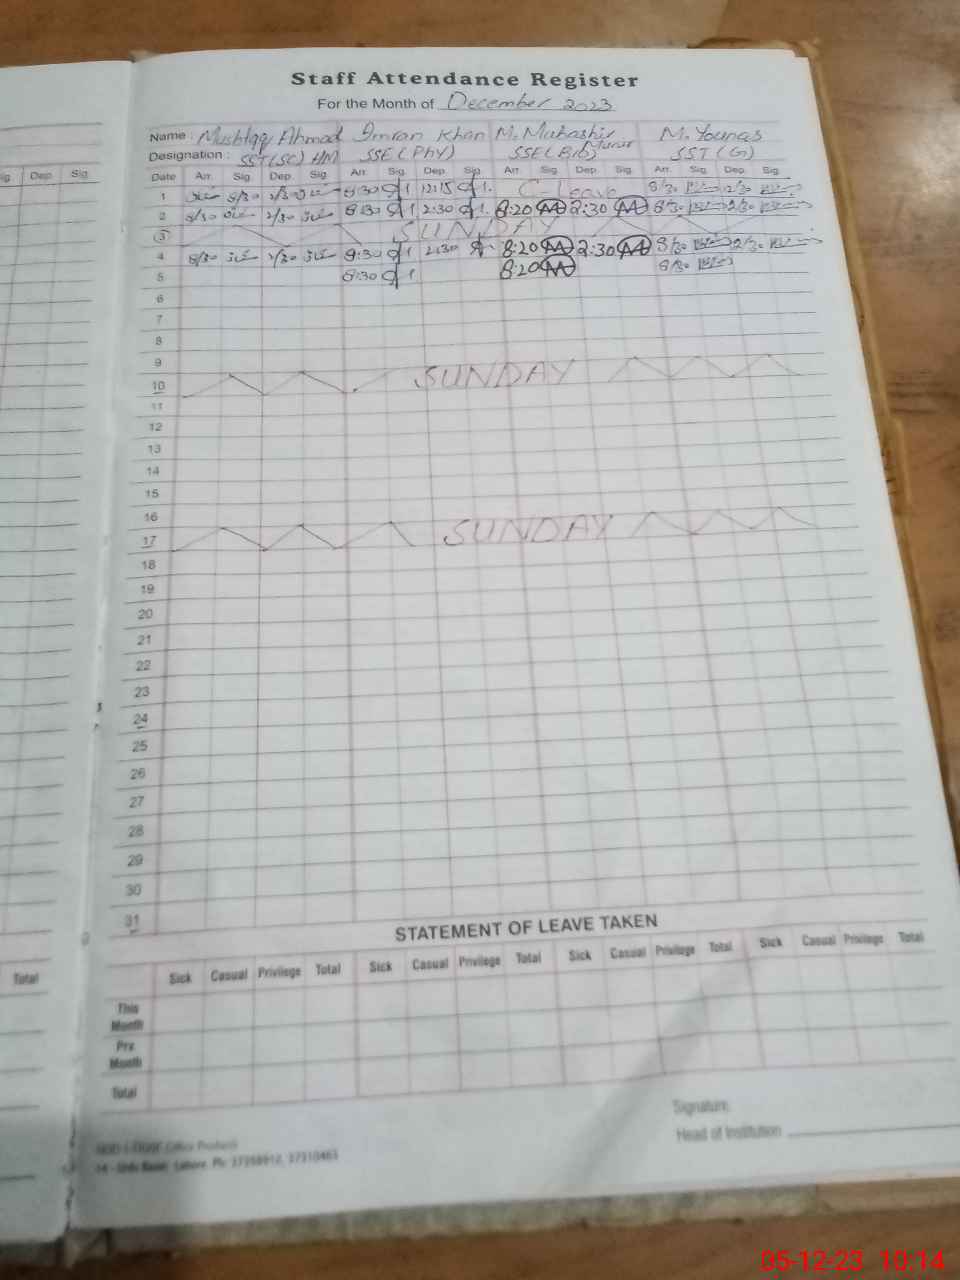 Staff Attendance Register
For the Month of December 2023
Name : Mushtaq Ahmad Imran Khan M. Mubashir Munir M. Younas
Designation : SST(SC) HM SSE(PHY) SSE(Bio) SST(G)
ig Dep. Sig.
Date Arr. Sig. Dep. Sig. Arr. Sig. Dep. Sig. Arr. Sig. Dep. Sig. Arr. Sig. Dep. Sig.
1 8/30 2/30 8:30 12:15 C-Leave 8/30 2/30
2 8/30 2/30 8:30 2:30 8:20 2:30 8/30 2/30
3 SUNDAY
4 8/30 2/30 8:30 2:30 8:20 2:30 8/30 2/30
5 8:30 8:20 8/30
6
7
8
9
10 SUNDAY
11
12
13
14
15
16
17 SUNDAY
18
19
20
21
22
23
24
25
26
27
28
29
30
31
STATEMENT OF LEAVE TAKEN
Total
Sick Casual Privilege Total Sick Casual Privilege Total Sick Casual Privilege Total Sick Casual Privilege Total
This Month
Prv. Month
Total
Signature
Head of Institution
14 - Urdu Bazar, Lahore. Ph: 37358912, 37310463
05-12-23 10:14